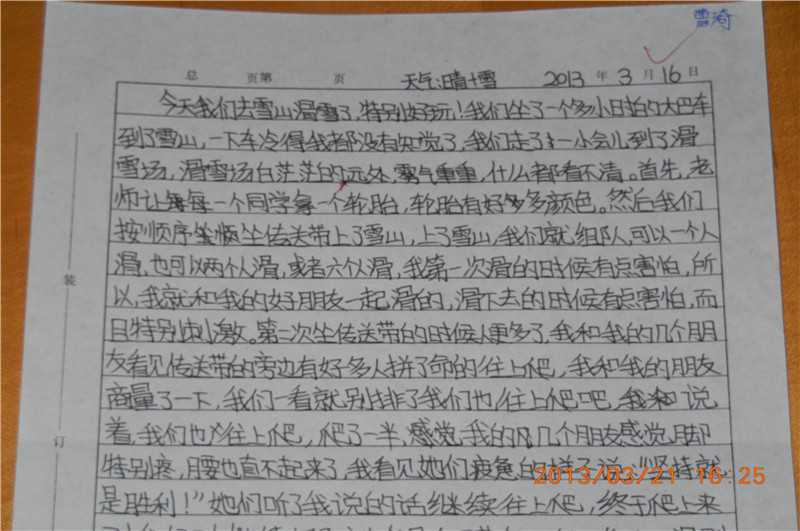 曹琦
总 页第 页 天气:晴+雪 2013 年 3 月 16 日
今天我们去雪山滑雪了,特别好玩!我们坐了一个多小时的大巴车
到了雪山,一下车冷得我都没有知觉了,我们走了一小会儿到了滑
雪场,滑雪场白茫茫的远处,雾气重重,什么都看不清。首先,老
师让每每一个同学拿一个轮胎,轮胎有好多多颜色。然后我们
按顺序坐传送带上了雪山,上了雪山,我们就组队,可以一个人
滑,也可以两个人滑,或者六个人滑,我第一次滑的时候有点害怕,所
以,我就和我的好朋友一起滑的,滑下去的时候有点害怕,而
且特别刺激。第二次坐传送带的时候人更多了,我和我的几个朋
友看见传送带的旁边有好多人拼了命的往上爬,我和我的朋友
商量了一下,我们一看就别排了我们也往上爬吧,我和说
着,我们也往上爬,爬了一半,感觉我的几个朋友感觉脚
特别疼,腰也直不起来了,我看见她们疲惫的样子说:“坚持就
是胜利!”她们听了我说的话继续往上爬,终于爬上来
装
订
2013/03/21 16:25